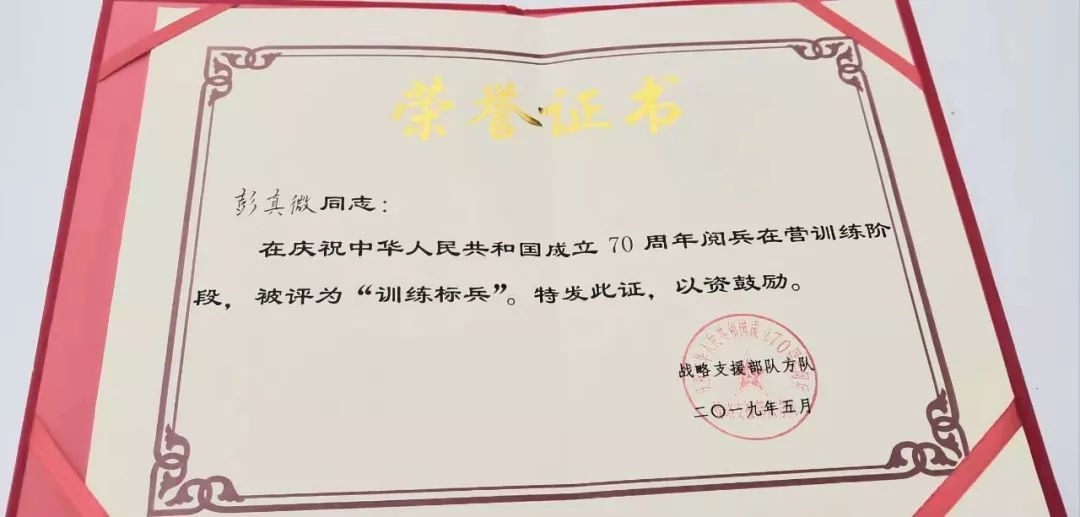 荣誉证书
彭真微同志：
在庆祝中华人民共和国成立70周年阅兵在营训练阶
段，被评为“训练标兵”。特发此证，以资鼓励。
战略支援部队方队
二〇一九年五月